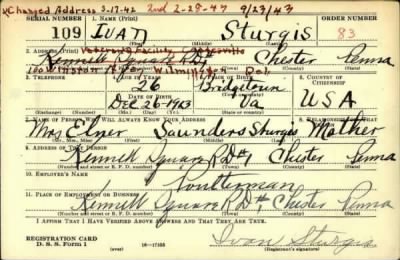 Changed Address 3-17-42 2nd 2-28-43 9/23/43
SERIAL NUMBER 1. NAME (Print) ORDER NUMBER
109 Ivan Sturgis 83
(First) (Middle) (Last)
2. ADDRESS (Print)
Kennett Square RD1 Chester Penna
Wilmington Del.
(Number and street or R. F. D. number) (Town) (County) (State)
3. TELEPHONE 4. AGE IN YEARS 5. PLACE OF BIRTH 6. COUNTRY OF CITIZENSHIP
26 Bridgetown
DATE OF BIRTH (Town or county)
Dec 26-1913 Va. USA
(Exchange) (Number) (Mo.) (Day) (Yr.) (State or country)
7. NAME OF PERSON WHO WILL ALWAYS KNOW YOUR ADDRESS 8. RELATIONSHIP OF THAT PERSON
Mrs Saunders Sturgis Mother
(Mr., Mrs., Miss) (First) (Middle) (Last)
9. ADDRESS OF THAT PERSON
Kennett Square RD#1 Chester Penna
(Number and street or R. F. D. number) (Town) (County) (State)
10. EMPLOYER'S NAME
Poulterman
11. PLACE OF EMPLOYMENT OR BUSINESS
Kennett Square RD#1 Chester Penna
(Number and street or R. F. D. number) (Town) (County) (State)
I AFFIRM THAT I HAVE VERIFIED ABOVE ANSWERS AND THAT THEY ARE TRUE.
REGISTRATION CARD
D. S. S. Form 1 (over) 16-17105 Ivan Sturgis
(Registrant's signature)